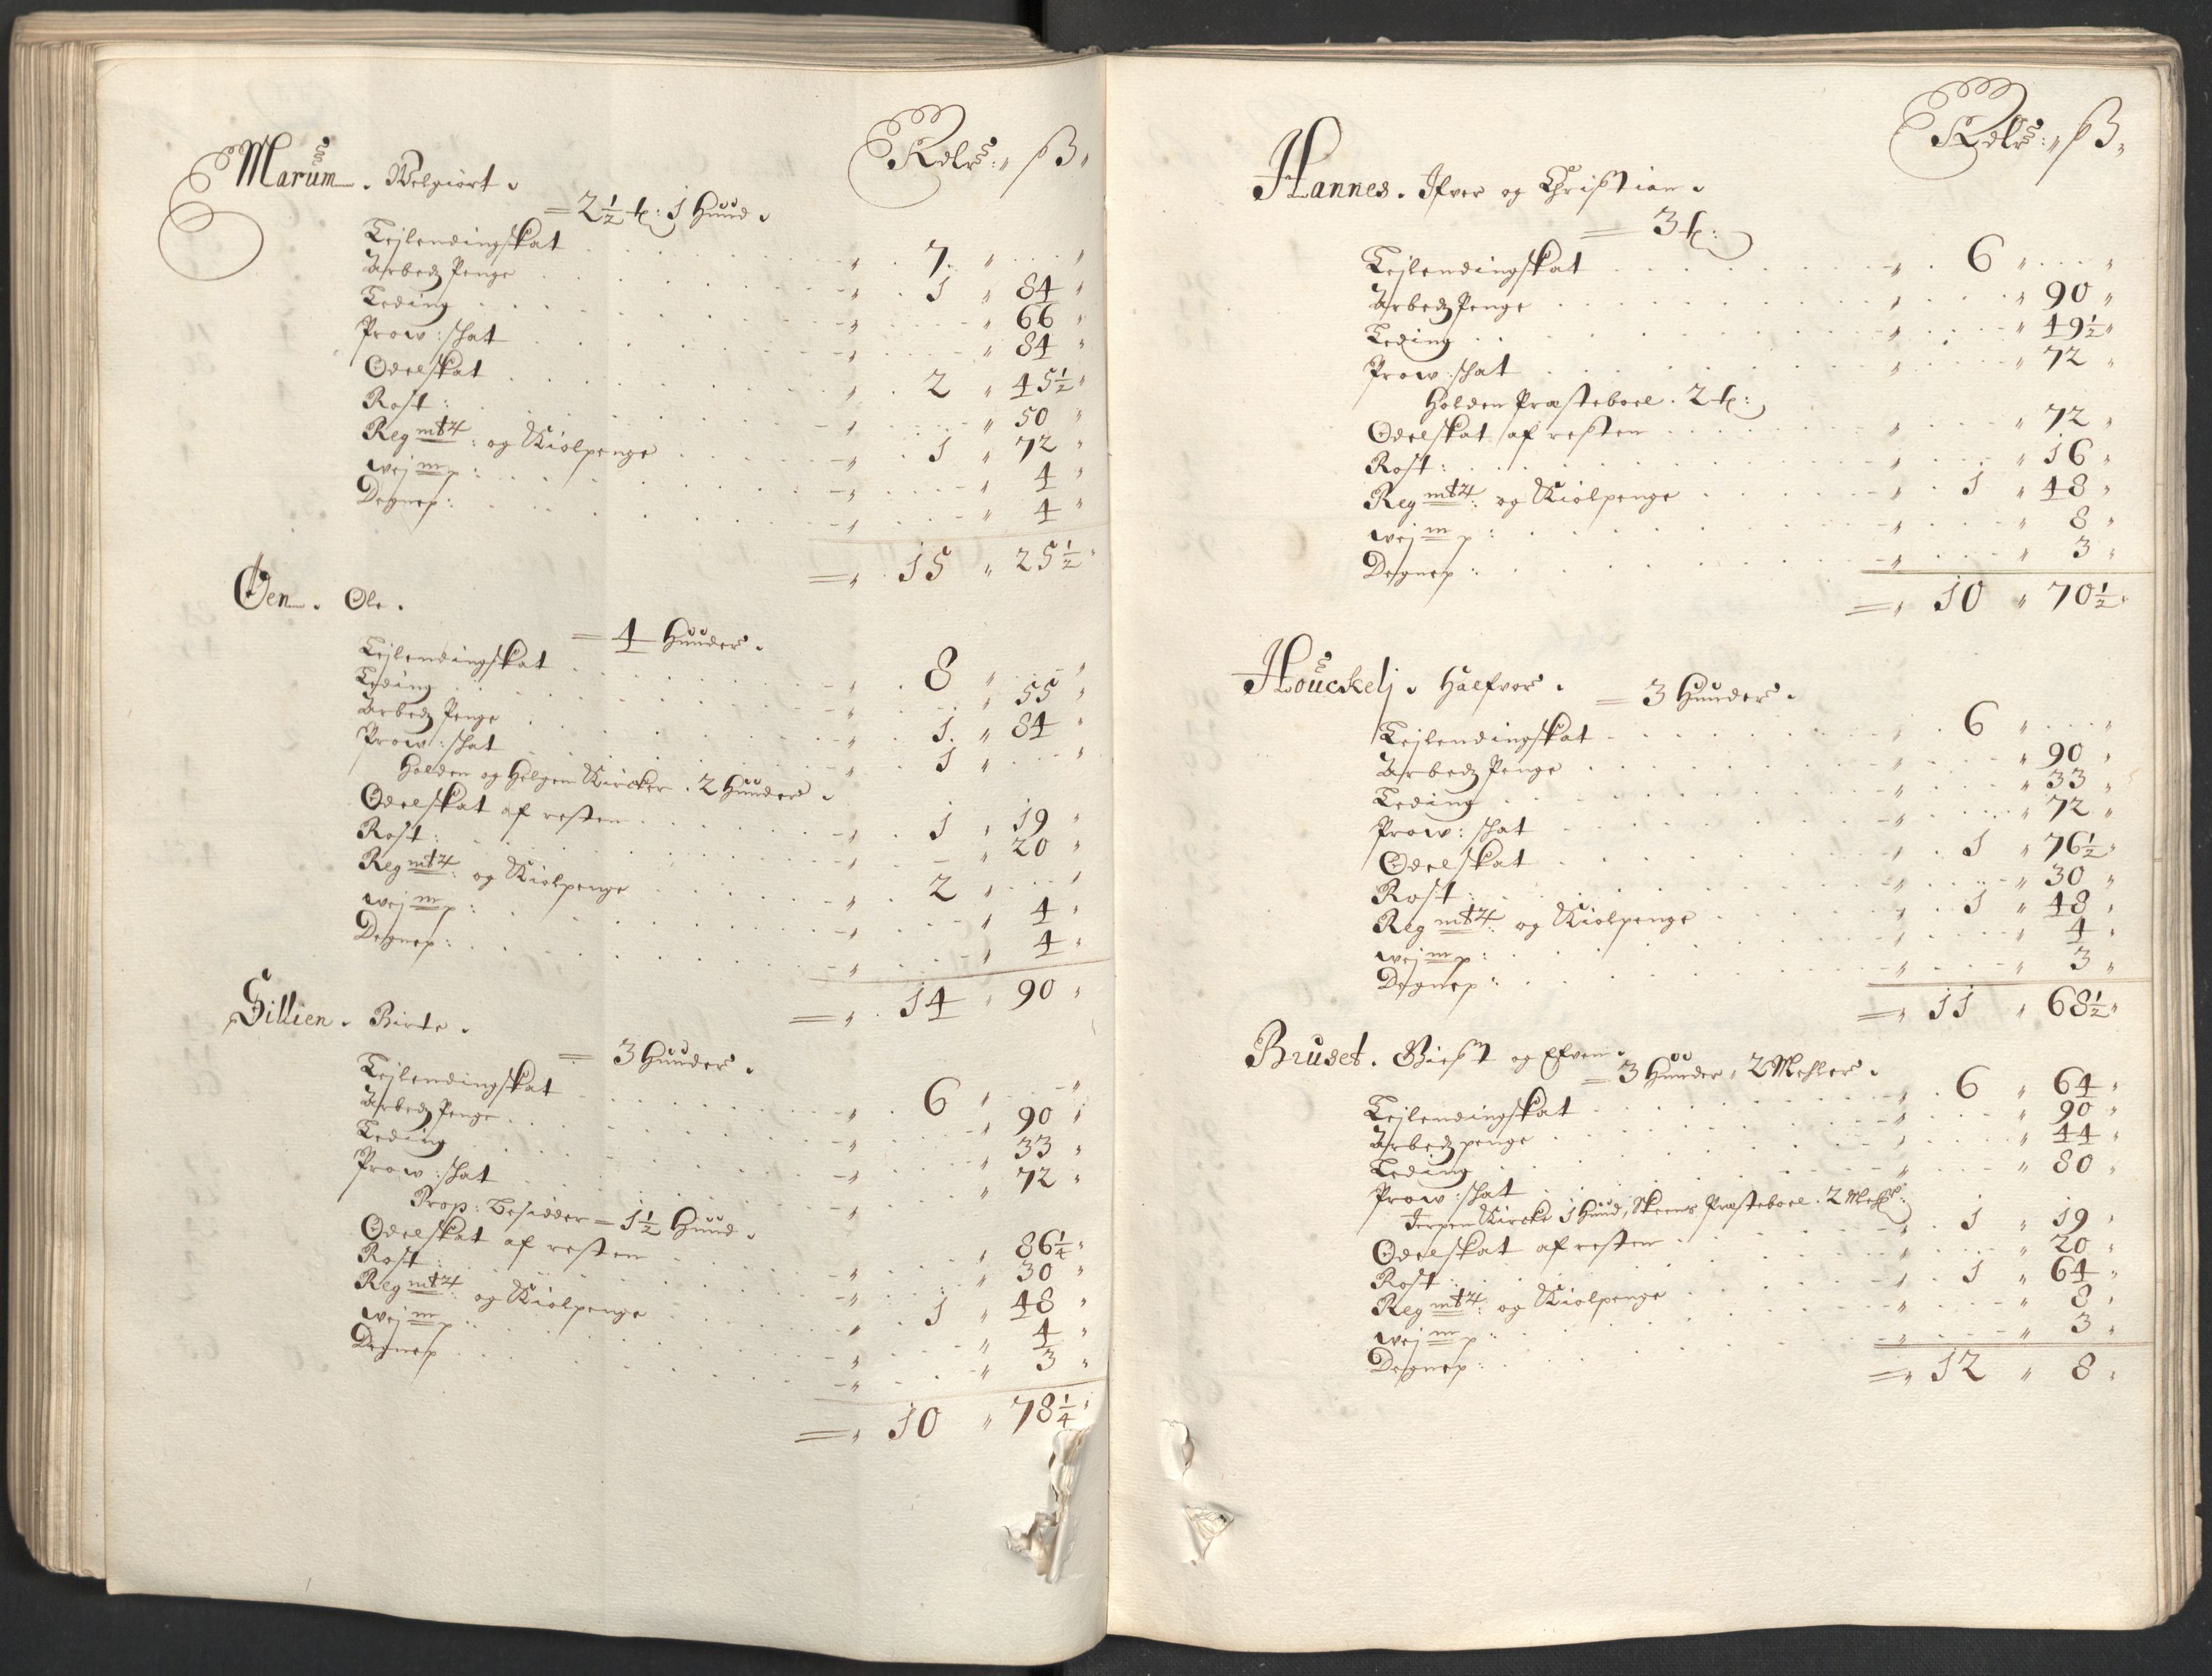 Rdlr: ß
Marum. Velgiort.
= 2½ ℔: 1 Huud.
Lejlendingskat 7
Arbedz Penge 1 84
Leding 66
Prow: skat 84
Odelskat 2 45½
Rost: 50
Regmtz: og Kiolpenge 1 72
wejmp: 4
Degnep: 4
= 15 25½
Øen. Ole.
= 4 Huuder.
Lejlendingskat 8
Leding 55
Arbedz Penge 1 84
Prow: skat 1
Holden og Helgen Kircker. 2 Huuder
Odelskat af resten 1 19
Rost: 20
Regmtz: og Kiolpenge 2
wejmp: 4
Degnep: 4
= 14 90
Sillien. Birte.
= 3 Huuder.
Lejlendingskat 6
Arbedz Penge 90
Leding 33
Prow: skat 72
Prop: besidder = 1½ Huud.
Odelskat af resten 86¼
Rost: 30
Regmtz: og Kiolpenge 1 48
wejmp: 4
Degnep 3
= 10 78¼
Rdlr: ß
Hannes. Ifver og Christian.
= 3 ℔:
Lejlendingskat 6
Arbedz Penge 90
Leding 49½
Prow: skat 72
Holden Præsteboel. 2 ℔:
Odelskat af resten 72
Rost: 16
Regmtz: og Kiolpenge 1 48
wejmp: 8
Degnep: 3
= 10 70½
Houckelj. Halfvor. = 3 Huuder.
Lejlendingskat 6
Arbedz Penge 90
Leding 33
Prow: skat 72
Odelskat 1 76½
Rost: 30
Regmtz: og Kiolpenge 1 48
wejmp: 4
Degnep: 3
= 11 68½
Bruset. og Efven.
= 3 Huuder, 2 Mehler.
Lejlendingskat 6 64
Arbedz penge 90
Leding 44
Prow: skat 80
Jerpen Kircke 1 Huud, Skeens Præsteboel. 2 Mehlr:
Odelskat af resten 1 19
Rost: 20
Regmtz: og Kiolpenge 1 64
wejmp: 8
Degnep: 3
= 12 8